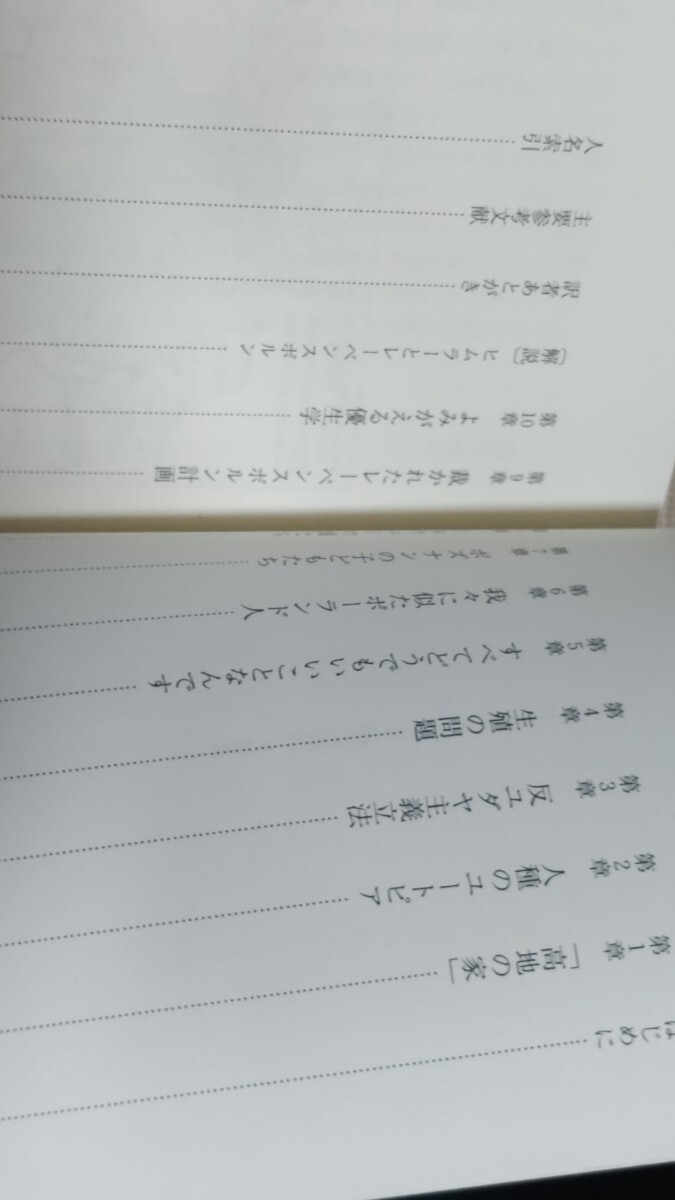 はじめに
第1章 「高地の家」
第2章 人種のユートピア
第3章 反ユダヤ主義立法
第4章 生殖の問題
第5章 すべてどうでもいいことなんです
第6章 我々に似たポーランド人
第7章 ポズナンの子どもたち
第9章 裁かれたレーベンスボルン計画
第10章 よみがえる優生学
〔解説〕 ヒムラーとレーベンスボルン
訳者あとがき
主要参考文献
人名索引